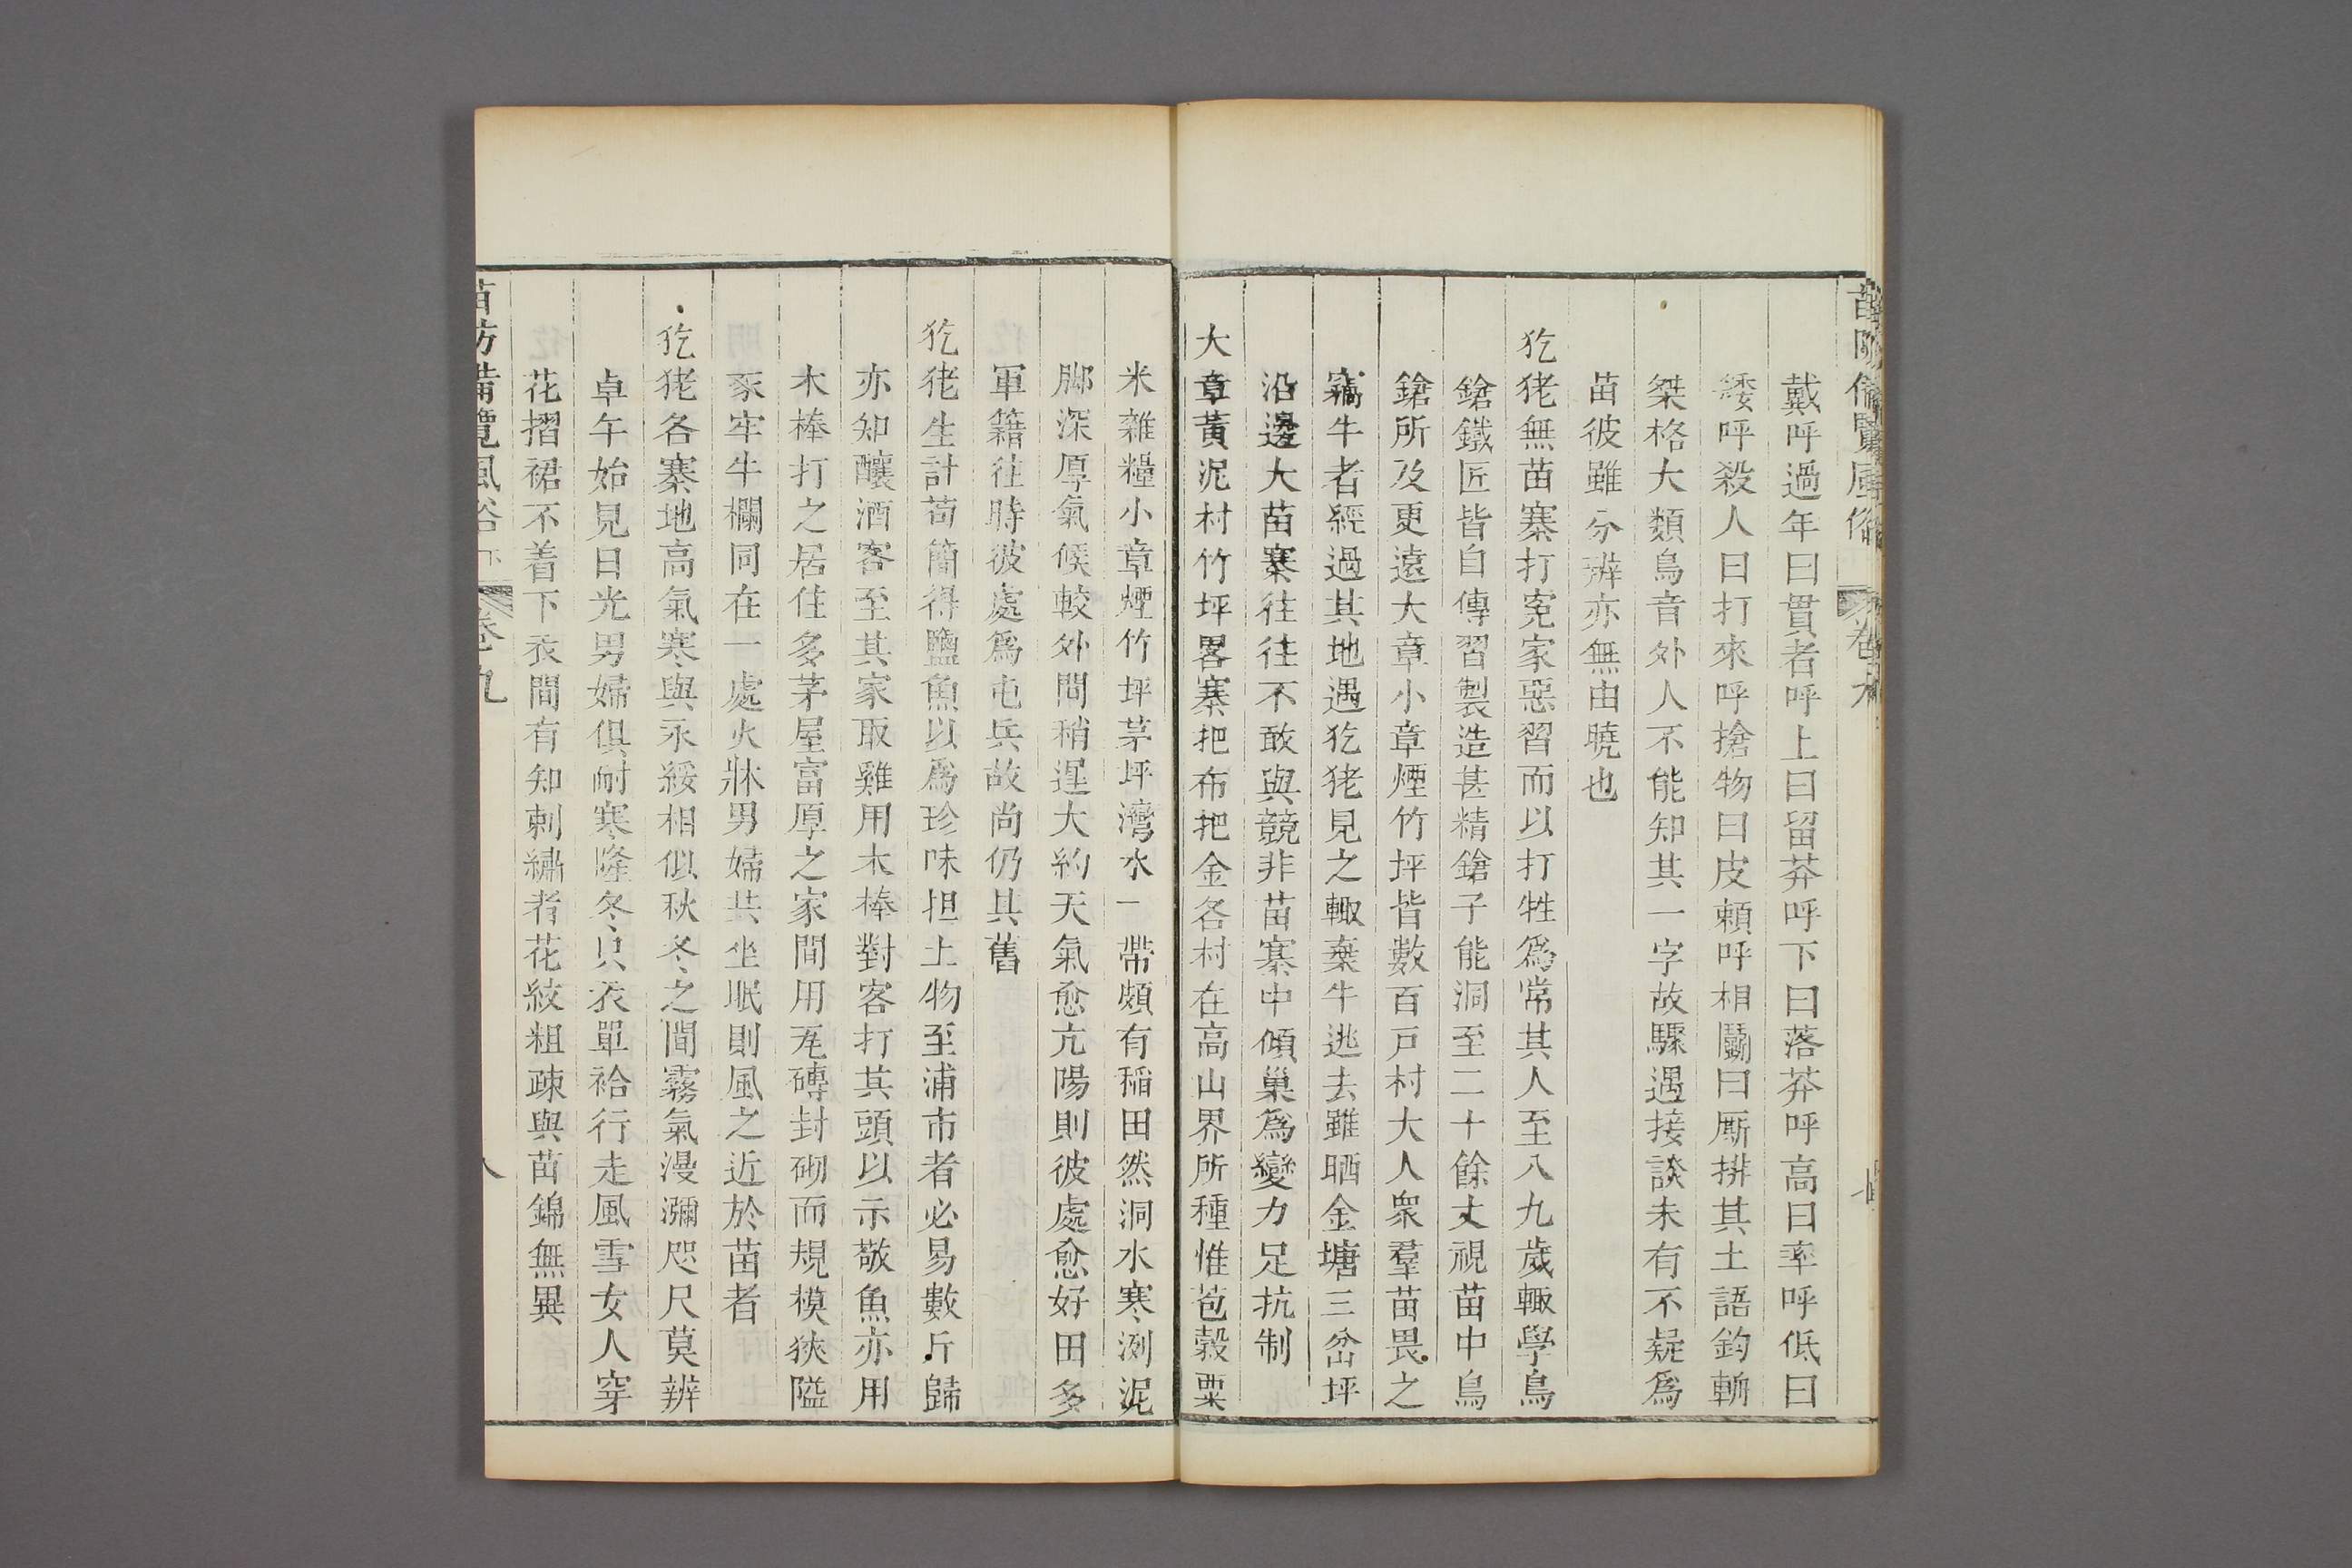 苗防備覽風俗 卷九
戴呼過年曰貫者呼上曰留莽呼下曰落莽呼高曰率呼低曰
矮呼殺人曰打來呼搶物曰皮賴呼相鬭曰厮拚其土語鈎輈
桀格大類鳥音外人不能知其一字故驟遇接談未有不疑爲
苗彼雖分辨亦無由曉也
犵狫無苗寨打寃家惡習而以打牲爲常其人至八九歲輙學鳥
鎗鐵匠皆自傳習製造甚精鎗子能洞至二十餘丈視苗中鳥
鎗所及更遠大章小章煙竹坪皆數百戸村大人衆羣苗畏之
竊牛者經過其地遇犵狫見之輙棄牛逃去雖晒金塘三岔坪
沿邊大苗寨往往不敢與競非苗寨中傾巢爲變力足抗制
大章黃泥村竹坪畧寨把布把金各村在高山界所種惟苞穀粟
米雜糧小章煙竹坪茅坪灣水一帶頗有稻田然洞水寒洌泥
脚深厚氣候較外間稍遲大約天氣愈亢陽則彼處愈好田多
軍籍往時彼處爲屯兵故尚仍其舊
犵狫生計苟簡得鹽魚以爲珍味担土物至浦市者必易數斤歸
亦知釀酒客至其家取雞用木棒對客打其頭以示敬魚亦用
木棒打之居住多茅屋富厚之家間用瓦磚封砌而規模狹隘
豕牢牛欄同在一處火牀男婦共坐眠則風之近於苗者
犵狫各寨地高氣寒與永綏相似秋冬之間霧氣漫瀰咫尺莫辨
卓午始見日光男婦俱耐寒隆冬只衣單袷行走風雪女人穿
花摺裙不着下衣間有知刺繡者花紋粗疎與苗錦無異
苗防備覽風俗下 卷九 八